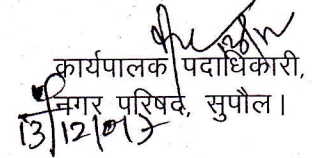 कार्यपालक पदाधिकारी,
नगर परिषद, सुपौल।
13/12/07